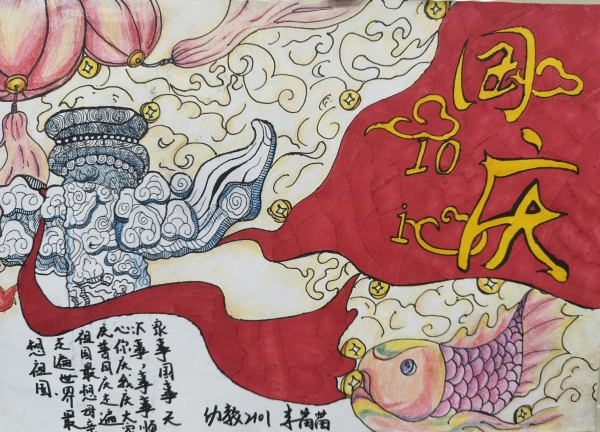 国庆
10
1
家事国事天
下事,事事顺
心你庆我庆大家
庆普同庆走遍
祖国最想母亲
走遍世界最
想祖国
幼教2101 李苗苗